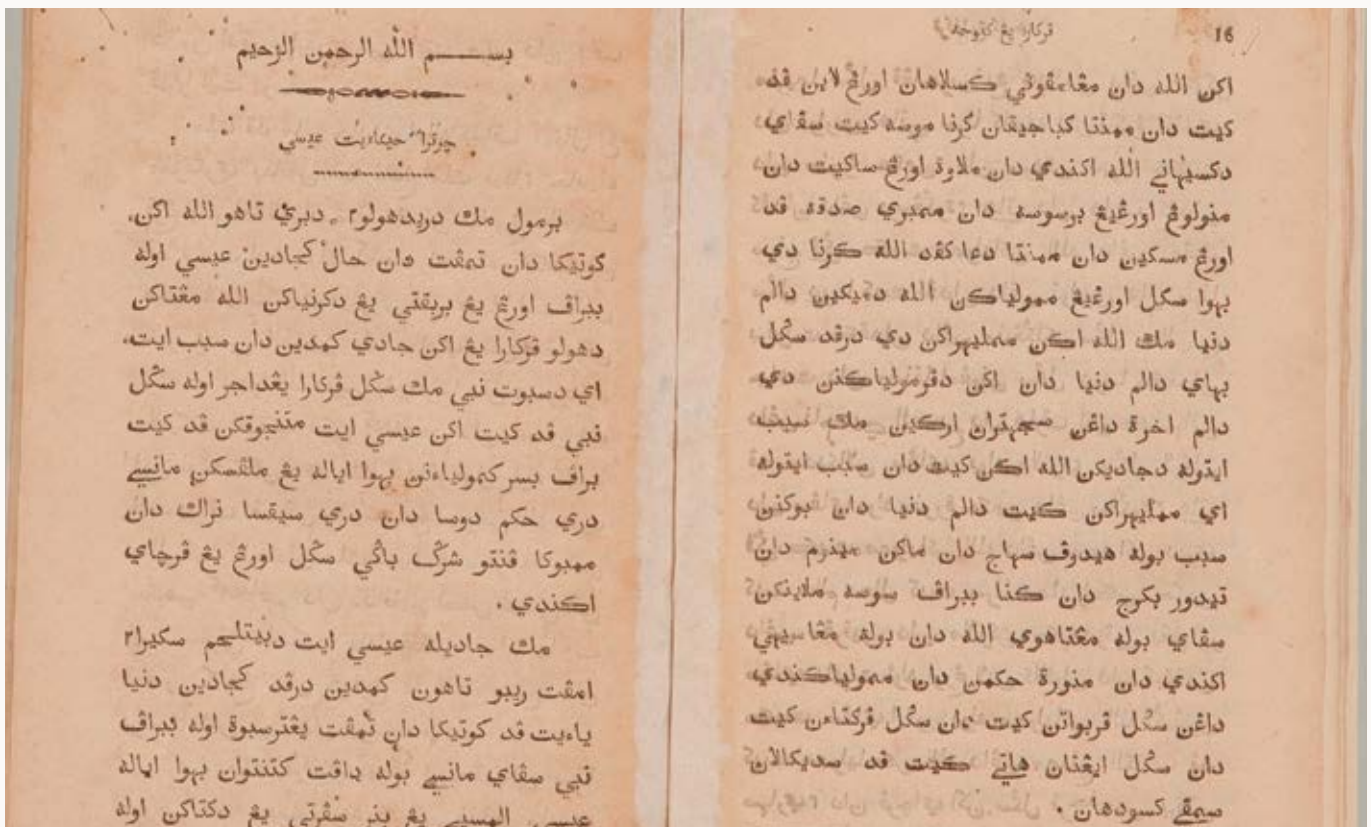 16
ڤرکارا يڠ
اکن الله دان مڠامڤوني کسلاهان اورڠ لاين ڤد
کيت دان ممنتا کباجيقان کرنا موسه کيت سڤاي
دکسيهاني الله اکندي دان ملاوة اورڠ ساکيت دان
منولوڠ اورڠيڠ برسوسه دان ممبري صدقه ڤد
اورڠ مسکين دان ممنتا دعا کڤد الله کرنا دي
بهوا سکل اورڠيڠ ممولياکن الله دميکين دالم
دنيا مك الله اکن ممليهراکن دي درڤد سݢل
بهاي دالم دنيا دان اکن دڤرمولياکنن دي
دالم اخرة داڠن سجهتران ارکين مك سبب
ايتوله دجاديکن الله اکن کيت دان سبب ايتوله
اي ممليهراکن کيت دالم دنيا دان بوکنن
سبب بوله هيدوڤ سهاج دان ماکن مينم دان
تيدور بکرج دان کنا ببراڤ سوسه ملاينکن
سڤاي بوله مڠتاهوي الله دان بوله مڠاسيهي
اکندي دان منورة حکمن دان ممولياکندي
داڠن سݢل ڤربواتن کيت دان سݢل ڤرکتاءن کيت
دان سݢل ايڠتان هاتي کيت ڤد سديکالان
سمڤي کسودهان ٠
بســـم الله الرحمن الرحيم
چرترا٢ حکايت عيسي
برمول مك دريدهولو٢ دبري تاهو الله اکن
کوتيکا دان تمڤت دان حال کجادين عيسي اوله
ببراڤ اورڠ يڠ بربقتي يڠ دکرنياکن الله مڠتاکن
دهولو ڤرکارا يڠ اکن جادي کمدين دان سبب ايت
اي دسبوت نبي مك سݢل ڤرکارا يڠداجر اوله سݢل
نبي ڤد کيت اکن عيسي ايت متنجوقکن ڤد کيت
براڤ بسر کمولياءنن بهوا اياله يڠ ملڤسکن مانسي
دري حکم دوسا دان دري سيقسا نراك دان
ممبوکا ڤنتو شرݢ باݢي سݢل اورڠ يڠ ڤرچاي
اکندي ٠
مك جاديله عيسي ايت دبيتلحم سکيرا٢
امڤت ريبو تاهون کمدين درڤد کجادين دنيا
ياءيت ڤد کوتيکا دان تمڤت يڠترسبوة اوله ببراڤ
نبي سڤاي مانسي بوله داڤت کتنتوان بهوا اياله
عيسي المسيح يڠ بنر سڤرتي يڠ دکتاکن اوله